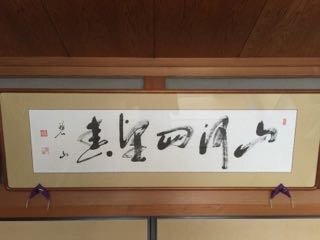 山河四望春
山